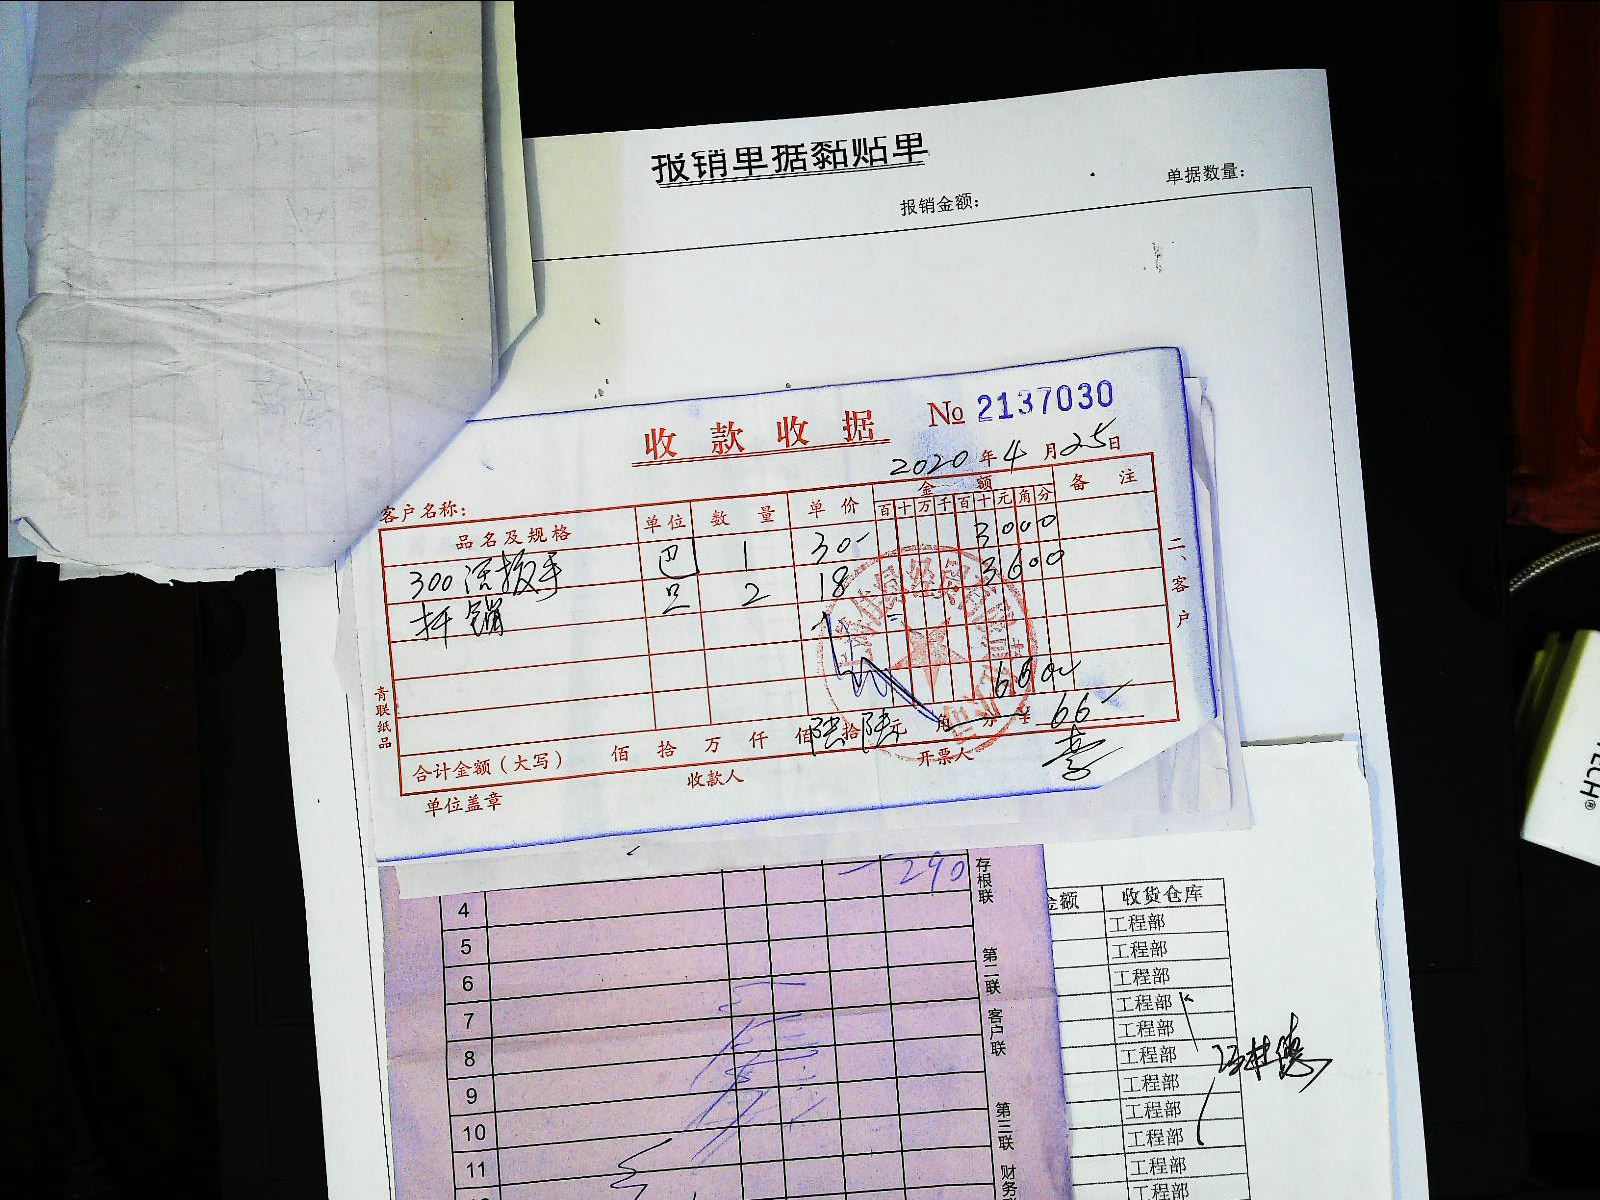 报销单据黏贴单
单据数量：
报销金额：
收款收据 № 2137030
2020年4月25日
客户名称：
品名及规格 单位 数量 单价 金额 备注
百十万千百十元角分
300 扳手 1 30- 3000
2 18 3600
6600
合计金额(大写) 佰拾万仟佰陆拾陆元角分¥ 66-
单位盖章 收款人 开票人
二、客户
青联纸品
290
4
5
6
7
8
9
10
11
存根联
第二联 客户联
第三联 财务
金额 收货仓库
工程部
工程部
工程部
工程部
工程部
工程部
工程部
工程部
工程部
工程部
工程部